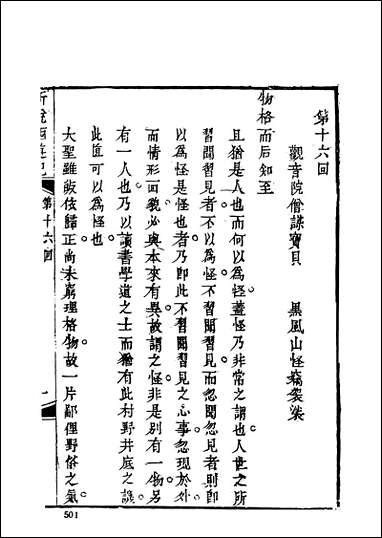 第十六回
觀音院僧謀寶貝　黑風山怪竊袈裟
物格而后知至
且猶是人也而何以為怪蓋怪乃非常之謂也人世之所
習聞習見者不以為怪不習聞習見而忽聞忽見者則即
以為怪是怪也者乃即此不習聞習見之心事忽現於外
而情形面貌必與本來有異故謂之怪非是別有一物另
有一人也乃以讀書學道之士而猶有此村野井底之談
此道可以為怪也
大聖雖敲伎歸正尚未窮理格物故一片鄙俚野俗之氣
新說西遊記
第十六回
一
501